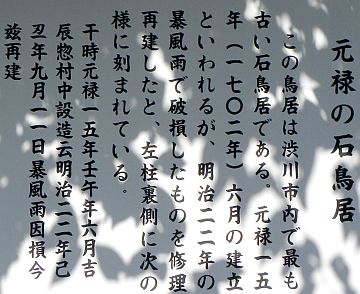 元禄の石鳥居
この鳥居は渋川市内で最も
古い石鳥居である。元禄一五
年（一七〇二年）六月の建立
といわれるが、明治二二年の
暴風雨で破損したものを修理
再建したと、左柱裏側に次の
様に刻まれている。
干時元禄一五年壬午年六月吉
辰惣村中設造云明治二二年己
丑年九月一一日暴風雨因損今
玆再建